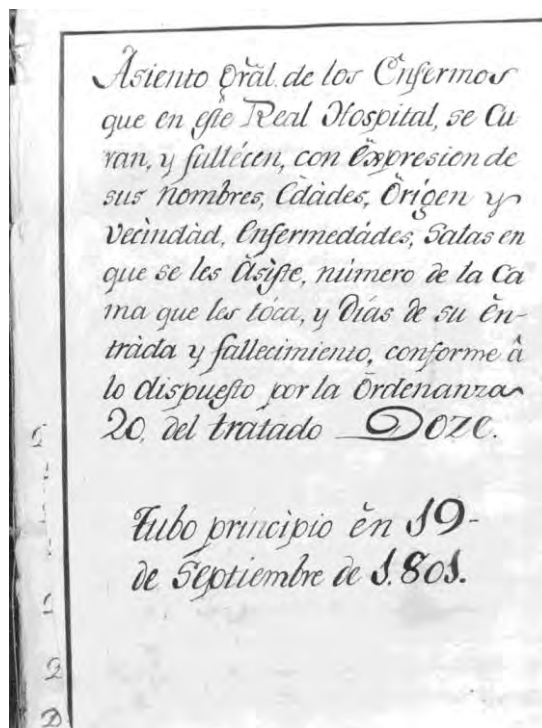 Asiento Gràl. de los Enfermos
que en este Real Hospital, se Cu
ran, y fallécen, con Expresion de
sus nombres, Edàdes, Orígen y
Vecindàd, Enfermedàdes, Salas en
que se les Asiste, número de la Ca
ma que les tóca, y Dias de su En-
tràda y fallecimiento, conforme â
lo dispuesto por la Ordenanza
20, del tratado Doze.
Tubo principio en 19-
de Septiembre de 1.801.